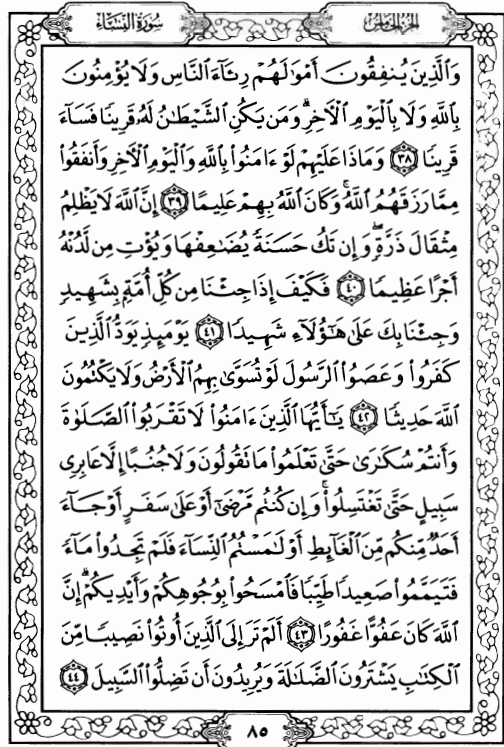 سُورَةُ النِّسَاءِ
الجُزْءُ الخَامِسُ
وَٱلَّذِينَ يُنفِقُونَ أَمْوَٰلَهُمْ رِئَآءَ ٱلنَّاسِ وَلَا يُؤْمِنُونَ
بِٱللَّهِ وَلَا بِٱلْيَوْمِ ٱلْءَاخِرِ ۗ وَمَن يَكُنِ ٱلشَّيْطَٰنُ لَهُۥ قَرِينًا فَسَآءَ
قَرِينًا ٣٨ وَمَاذَا عَلَيْهِمْ لَوْ ءَامَنُوا۟ بِٱللَّهِ وَٱلْيَوْمِ ٱلْءَاخِرِ وَأَنفَقُوا۟
مِمَّا رَزَقَهُمُ ٱللَّهُ ۚ وَكَانَ ٱللَّهُ بِهِمْ عَلِيمًا ٣٩ إِنَّ ٱللَّهَ لَا يَظْلِمُ
مِثْقَالَ ذَرَّةٍ ۖ وَإِن تَكُ حَسَنَةً يُضَٰعِفْهَا وَيُؤْتِ مِن لَّدُنْهُ
أَجْرًا عَظِيمًا ٤٠ فَكَيْفَ إِذَا جِئْنَا مِن كُلِّ أُمَّةٍۭ بِشَهِيدٍ
وَجِئْنَا بِكَ عَلَىٰ هَٰٓؤُلَآءِ شَهِيدًا ٤١ يَوْمَئِذٍ يَوَدُّ ٱلَّذِينَ
كَفَرُوا۟ وَعَصَوُا۟ ٱلرَّسُولَ لَوْ تُسَوَّىٰ بِهِمُ ٱلْأَرْضُ وَلَا يَكْتُمُونَ
ٱللَّهَ حَدِيثًا ٤٢ يَٰٓأَيُّهَا ٱلَّذِينَ ءَامَنُوا۟ لَا تَقْرَبُوا۟ ٱلصَّلَوٰةَ
وَأَنتُمْ سُكَٰرَىٰ حَتَّىٰ تَعْلَمُوا۟ مَا تَقُولُونَ وَلَا جُنُبًا إِلَّا عَابِرِى
سَبِيلٍ حَتَّىٰ تَغْتَسِلُوا۟ ۚ وَإِن كُنتُم مَّرْضَىٰٓ أَوْ عَلَىٰ سَفَرٍ أَوْ جَآءَ
أَحَدٌ مِّنكُم مِّنَ ٱلْغَآئِطِ أَوْ لَٰمَسْتُمُ ٱلنِّسَآءَ فَلَمْ تَجِدُوا۟ مَآءً
فَتَيَمَّمُوا۟ صَعِيدًا طَيِّبًا فَٱمْسَحُوا۟ بِوُجُوهِكُمْ وَأَيْدِيكُمْ ۗ إِنَّ
ٱللَّهَ كَانَ عَفُوًّا غَفُورًا ٤٣ أَلَمْ تَرَ إِلَى ٱلَّذِينَ أُوتُوا۟ نَصِيبًا مِّنَ
ٱلْكِتَٰبِ يَشْتَرُونَ ٱلضَّلَٰلَةَ وَيُرِيدُونَ أَن تَضِلُّوا۟ ٱلسَّبِيلَ ٤٤
٨٥